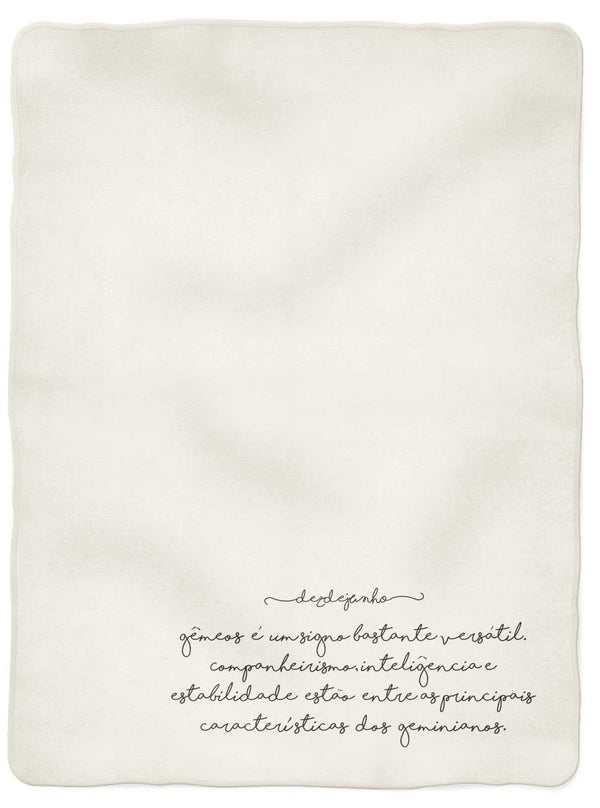 dezdejunho
gêmeos é um signo bastante versátil.
companheirismo, inteligência e
estabilidade estão entre as principais
características dos geminianos.